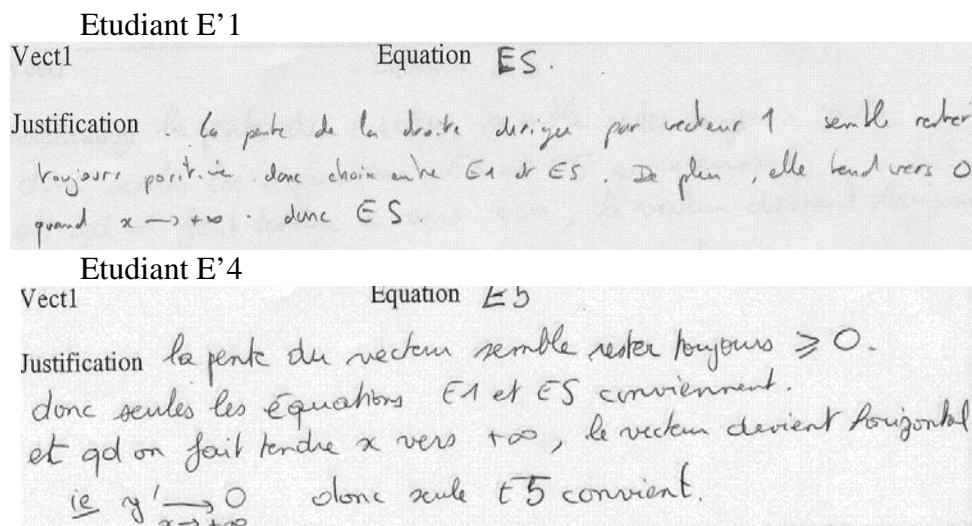 Etudiant E'1
Vect1 Equation E5.
Justification . la pente de la droite dirigée par vecteur 1 semble rester
toujours positive donc choix entre E1 et E5. De plus, elle tend vers 0
quand x → +∞ . donc E5.
Etudiant E'4
Vect1 Equation E5
Justification la pente du vecteur semble rester toujours ⩾ 0.
donc seules les équations E1 et E5 conviennent.
et qd on fait tendre x vers +∞, le vecteur devient horizontal
ie y' → 0 donc seule E5 convient.
x→+∞